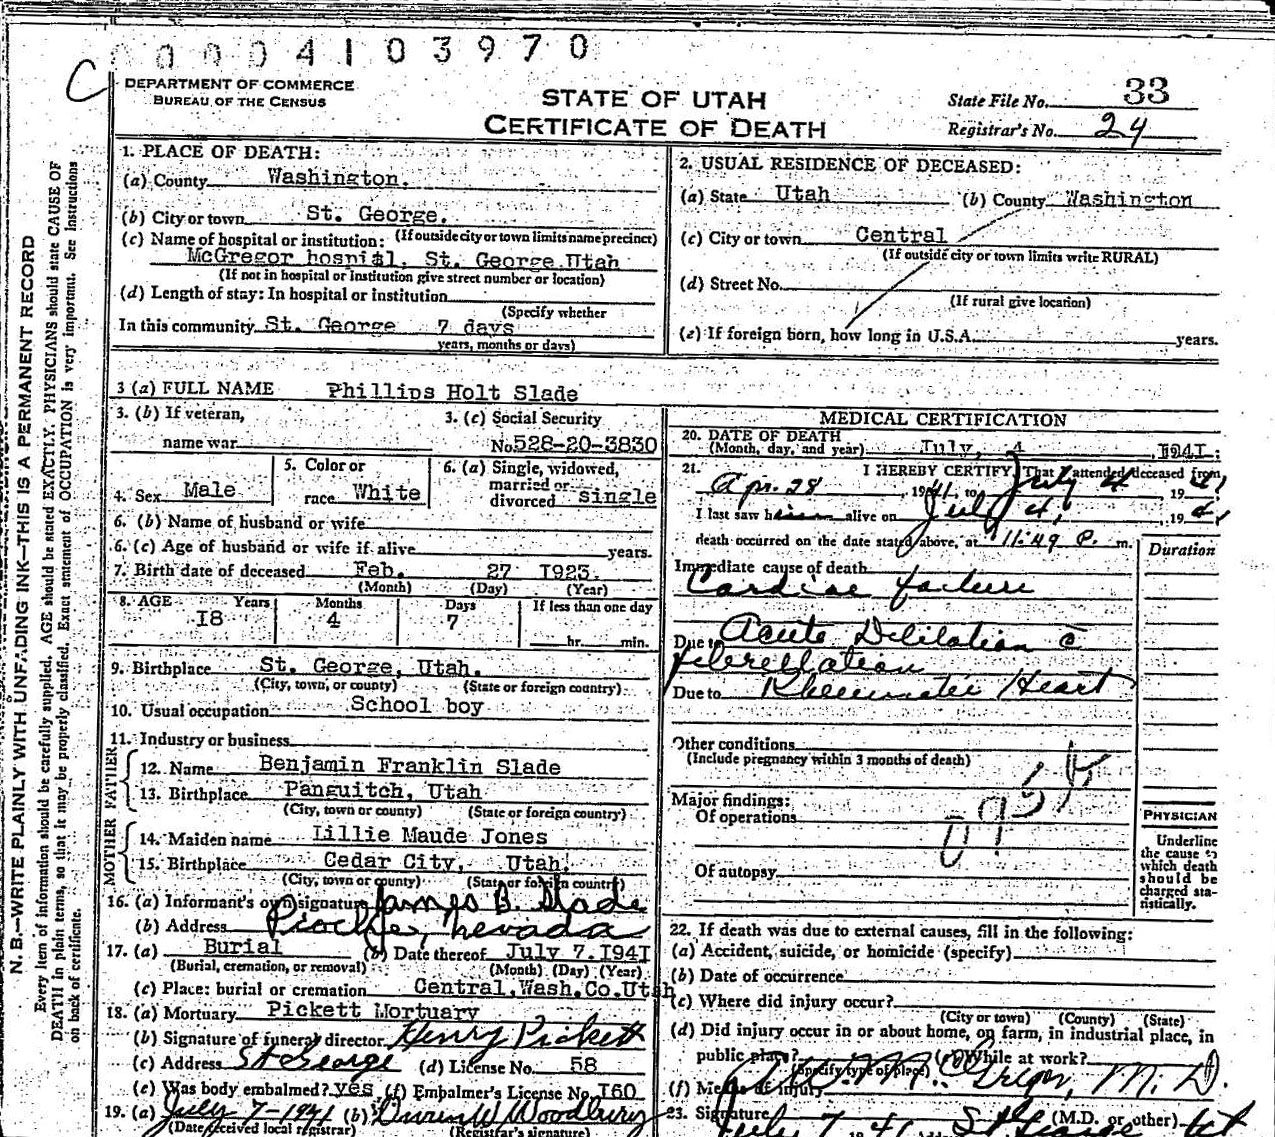 0004103970
C
DEPARTMENT OF COMMERCE
BUREAU OF THE CENSUS
STATE OF UTAH
CERTIFICATE OF DEATH
State File No. 33
Registrar's No. 24
N. B.—WRITE PLAINLY WITH UNFADING INK—THIS IS A PERMANENT RECORD
Every item of information should be carefully supplied. AGE should be stated EXACTLY. PHYSICIANS should state CAUSE OF
DEATH in plain terms, so that it may be properly classified. Exact statement of OCCUPATION is very important. See Instructions
on back of certificate.
1. PLACE OF DEATH:
(a) County Washington.
(b) City or town St. George.
(c) Name of hospital or institution: (If outside city or town limits name precinct)
McGregor hospial, St. George Utah
(If not in hospital or institution give street number or location)
(d) Length of stay: In hospital or institution
(Specify whether
In this community St. George 7 days
years, months or days)
2. USUAL RESIDENCE OF DECEASED:
(a) State Utah (b) County Washington
(c) City or town Central
(If outside city or town limits write RURAL)
(d) Street No.
(If rural give location)
(e) If foreign born, how long in U.S.A. years.
3 (a) FULL NAME Phillips Holt Slade
3. (b) If veteran,
name war
3. (c) Social Security
No. 528-20-3830
4. Sex Male
5. Color or
race White
6. (a) Single, widowed,
married or
divorced single
6. (b) Name of husband or wife
6. (c) Age of husband or wife if alive years.
7. Birth date of deceased Feb. 27 1923.
(Month) (Day) (Year)
8. AGE Years Months Days If less than one day
18 4 7 hr. min.
9. Birthplace St. George, Utah.
(City, town, or county) (State or foreign country)
10. Usual occupation School boy
11. Industry or business
FATHER
12. Name Benjamin Franklin Slade
13. Birthplace Panguitch, Utah
(City, town or county) (State or foreign country)
MOTHER
14. Maiden name Lillie Maude Jones
15. Birthplace Cedar City, Utah.
(City, town or county) (State or foreign country)
16. (a) Informant's own signature James B. Slade
(b) Address Pioche, Nevada
17. (a) Burial (b) Date thereof July 7. 1941
(Burial, cremation, or removal) (Month) (Day) (Year)
(c) Place: burial or cremation Central, Wash. Co. Utah
18. (a) Mortuary Pickett Mortuary
(b) Signature of funeral director Henry Pickett
(c) Address St George (d) License No. 58
(e) Was body embalmed? yes (f) Embalmer's License No. 160
19. (a) July 7-1941 (b) Woodbury
(Date received local registrar) (Registrar's signature)
MEDICAL CERTIFICATION
20. DATE OF DEATH
(Month, day, and year) July, 4, 1941.
21. I HEREBY CERTIFY, That I attended deceased from
Apr. 28, 1941, to July 4, 19
I last saw him alive on July 4, 19
death occurred on the date stated above, at 11:49 P. m.
Duration
Immediate cause of death
Cardiac failure
Due to Acute Delilation c̄
feberellation
Due to Rheumatic Heart
Other conditions
(Include pregnancy within 3 months of death)
Major findings:
Of operations
Of autopsy
PHYSICIAN
Underline
the cause to
which death
should be
charged sta-
tistically.
22. If death was due to external causes, fill in the following:
(a) Accident, suicide, or homicide (specify)
(b) Date of occurrence
(c) Where did injury occur?
(City or town) (County) (State)
(d) Did injury occur in or about home, on farm, in industrial place, in
public place? (e) While at work?
(Specify type of place)
(f) Means of injury
M. D.
23. Signature (M.D. or other)
July 7 1941 St George Ut